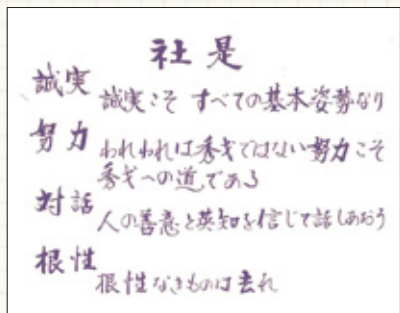 社是
誠実
誠実こそ すべての基本姿勢なり
努力
われわれは秀才ではない努力こそ
秀才への道である
対話
人の善意と英知を信じて話しあおう
根性
根性なきものは去れ